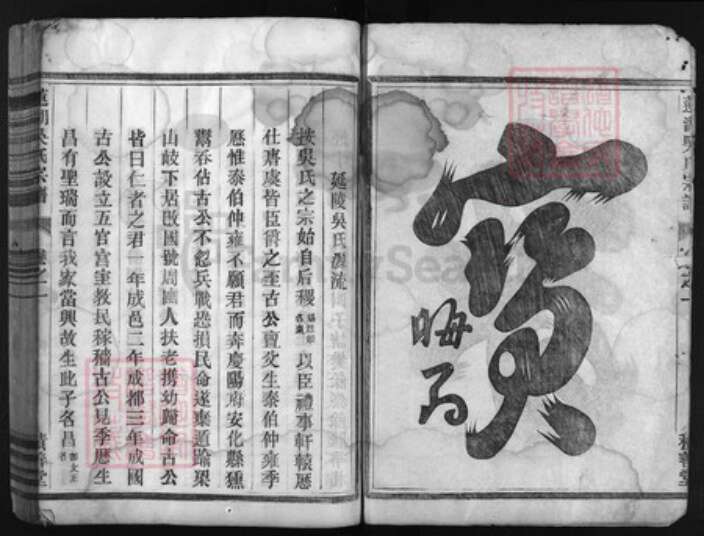 寶
晦可
延陵吳氏源流
按吳氏之宗始自后稷以臣禮事軒轅歷
仕唐虞皆臣爵之至古公亶父生泰伯仲雍季
歷惟泰伯仲雍不願君而奔慶陽府安化縣獯
鬻吞佔古公不忍兵戰恐損民命遂棄道踰梁
山岐下居改國號周國人扶老携幼歸命古公
皆曰仁者之君一年成邑二年成都三年成國
古公設立五官宮室教民稼穡古公見季歷生
昌有聖瑞而言我家當興故生此子名昌
吳氏宗譜